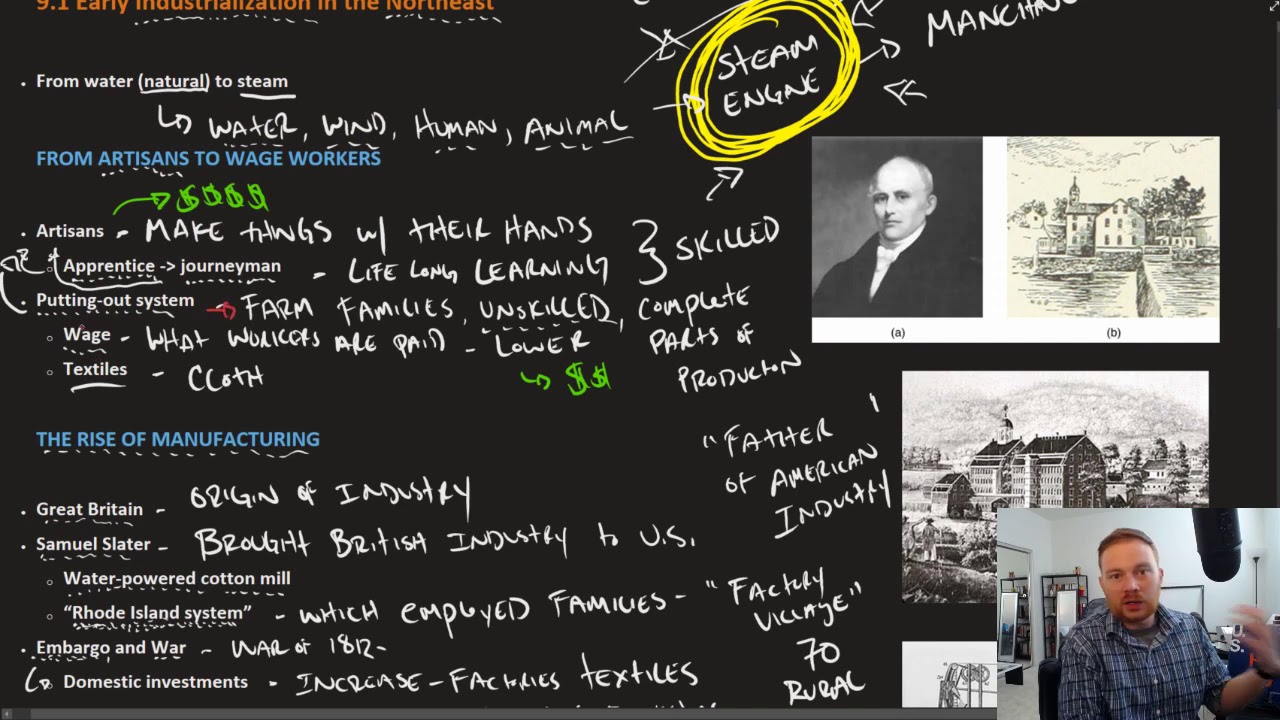 9.1 Early Industrialization in the Northeast
STEAM
ENGINE
• From water (natural) to steam
WATER, WIND, HUMAN, ANIMAL
FROM ARTISANS TO WAGE WORKERS
$$$$
• Artisans - MAKE THINGS w/ THEIR HANDS } SKILLED
Apprentice -> journeyman - LIFE LONG LEARNING
• Putting-out system → FARM FAMILIES, UNSKILLED, COMPLETE
PARTS OF
PRODUCTON
Wage - WHAT WORKERS ARE PAID - LOWER
$$
Textiles - CLOTH
(a)
(b)
THE RISE OF MANUFACTURING
"FATHER
OF AMERICAN
INDUSTRY"
• Great Britain - ORIGIN OF INDUSTRY
• Samuel Slater - BROUGHT BRITISH INDUSTRY to U.S.
Water-powered cotton mill
"Rhode Island system" - WHICH EMPLOYED FAMILIES - "FACTORY
VILLAGE"
70
RURAL
• Embargo and War - WAR OF 1812-
Domestic investments - INCREASE - FACTORIES TEXTILES
U.
S.